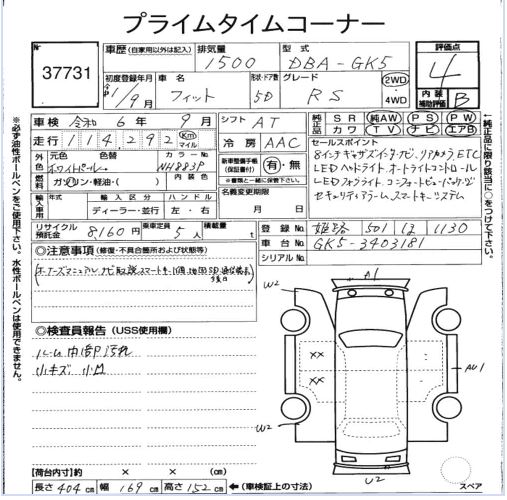 プライムタイムコーナー
No. 37731
車歴 (自家用以外は記入) 排気量 1500 型式 DBA-GK5
評価点 4
初度登録年月 令和 1/9月 車名 フィット 形状・ドア数 5D グレード RS 2WD・4WD
内装補助評価 B
車検 令和 6年 9月 シフト AT 純正品 SR 純AW PS PW
カワ TV ナビ エアB
走行 114,292 Km マイル 冷房 AAC
セールスポイント
外色 元色 ホワイトパール 色替 カラーNo NH883P
8インチギャザズインターナビ、リアカメラ ETC
LEDヘッドライト オートライトコントロール
燃料 ガソリン・軽油・( ) 新車整備手帳(保証書付) 有・無
※書類と一緒に保管して下さい。
LEDフォグライト コンフォートビューパッケージ
セキュリティアラーム スマートキーシステム
輸入車用 年式 輸入区分 ハンドル
年 ディーラー・並行 左・右
名義変更期限
月 日
リサイクル預託金 8,160円 乗車定員 5人 積載量 t
登録No 姫路 501 は 1130
車台No GK5-3403181
シリアルNo
◎注意事項 (修復・不具合箇所および状態等)
◎検査員報告 (USS使用欄)
ルーム内 汚れ
小キズ 小凹
A1
W2
XX
XX
AU1
W2
U2
スペア
【荷台内寸】 約 × × (cm)
長さ 404cm 幅 169cm 高さ 152cm ←(車検証上の寸法)
※必ず油性ボールペンをご使用下さい。水性ボールペンは使用できません。
←純正品に限り該当に○をつけて下さい。